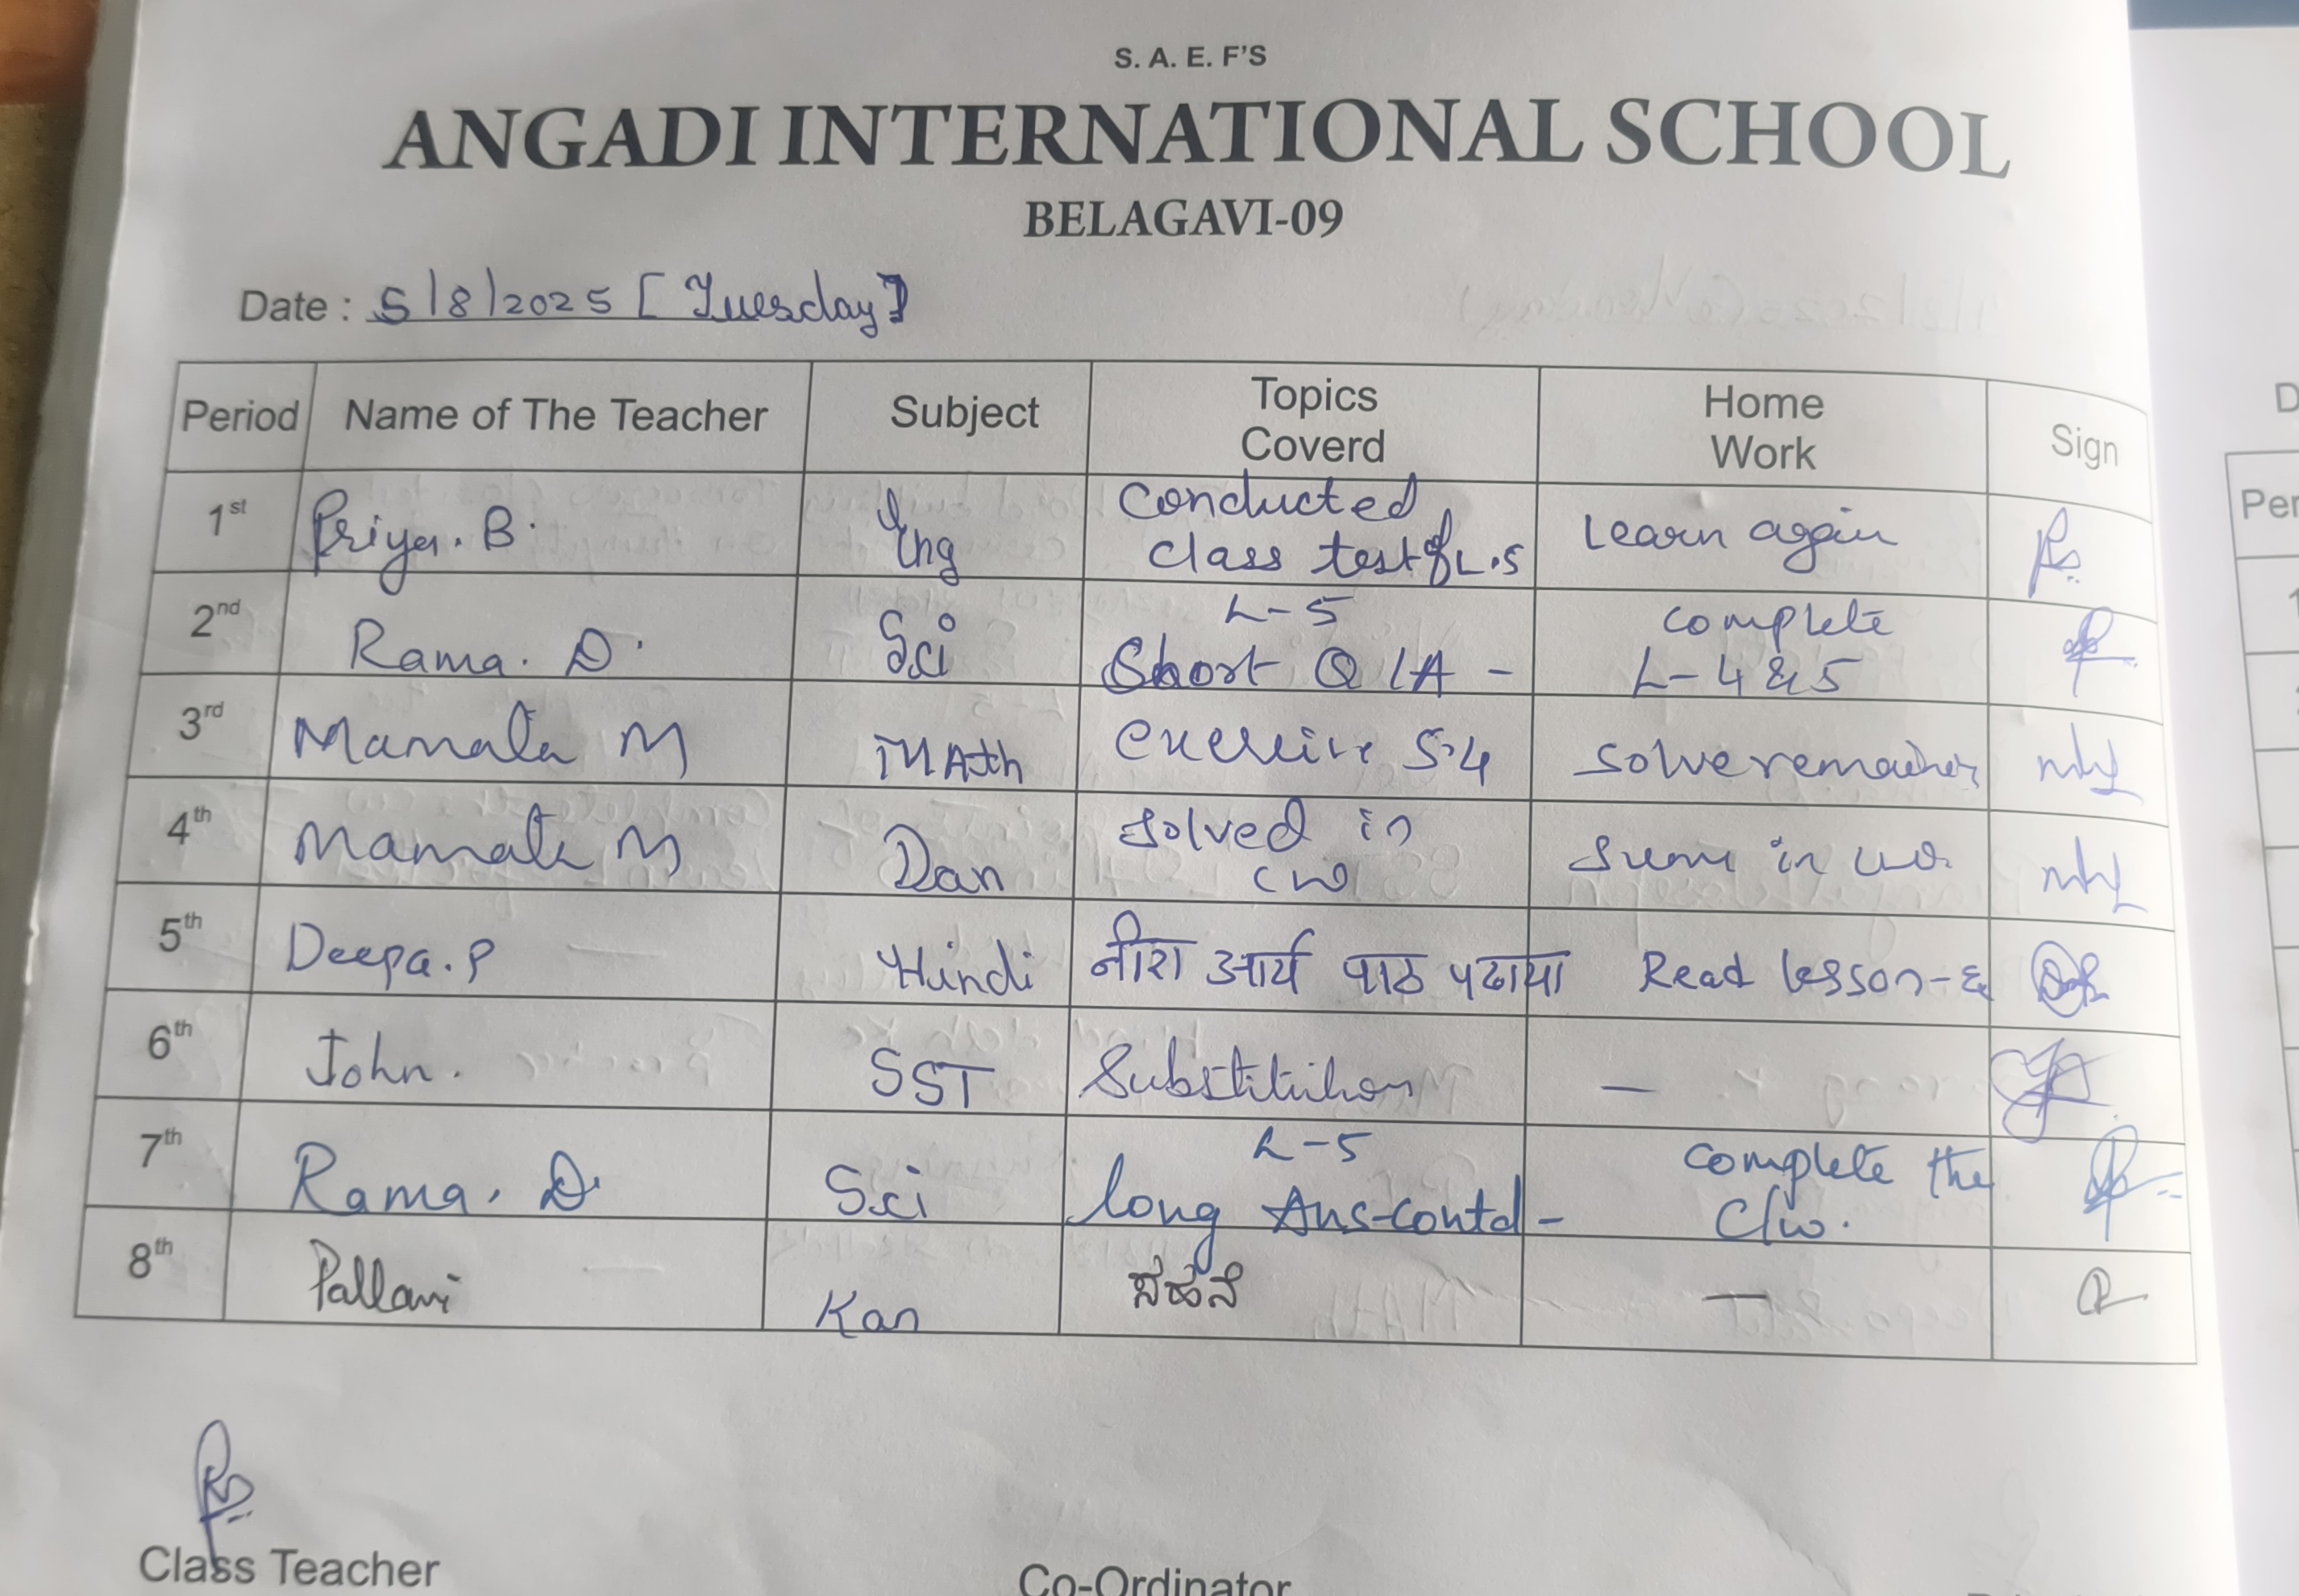 S. A. E. F'S
ANGADI INTERNATIONAL SCHOOL
BELAGAVI-09
Date : 5/8/2025 [Tuesday]
Period Name of The Teacher Subject Topics Coverd Home Work Sign
1st Priya. B. Eng Conducted class test of L.5 Learn again
2nd Rama. D. Sci L-5 Short Q/A - complete L-4 & 5
3rd Mamata M MAth exercise 5.4 solve remaining
4th Mamata M Dan solved in cw sum in
5th Deepa. P Hindi नीरा आर्य पाठ पढाया Read lesson-६
6th John. SST Substitution —
7th Rama. D. Sci L-5 long Ans-contd - complete the C/w.
8th Pallavi Kan —
Class Teacher
Co-Ordinator
D
Per